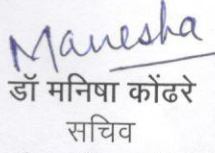 Manesha
डॉ मनिषा कोंढरे
सचिव